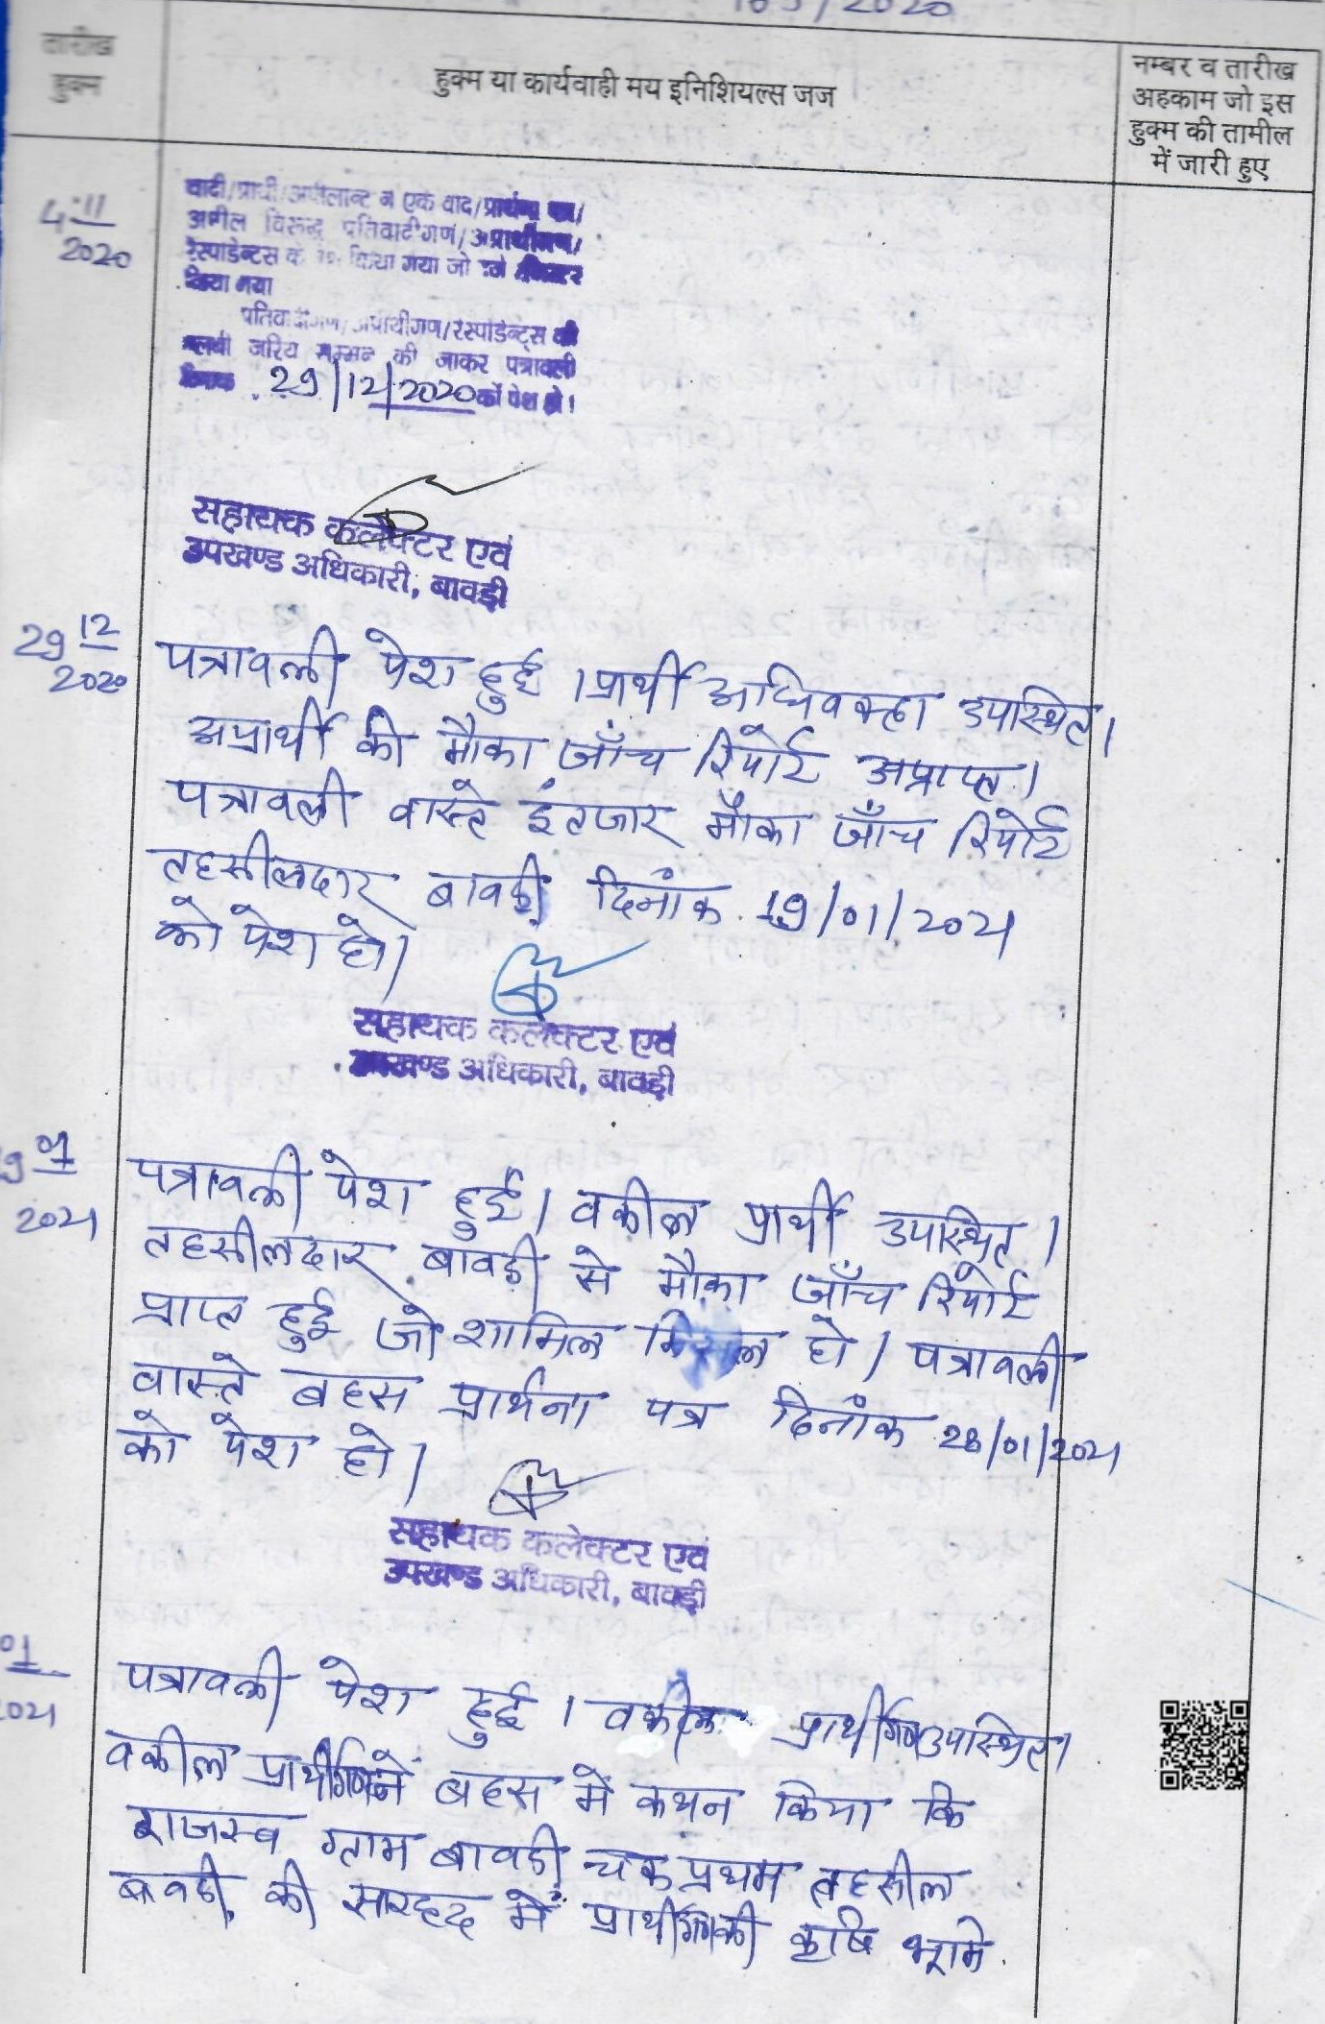 163/2020
तारीख
हुक्म
हुक्म या कार्यवाही मय इनिशियल्स जज
नम्बर व तारीख
अहकाम जो इस
हुक्म की तामील
में जारी हुए
4.11
2020
वादी/प्रार्थी/अपीलान्ट ने एक वाद/प्रार्थना पत्र/
अपील विरुद्ध प्रतिवादीगण/अप्रार्थीगण/
रेस्पोंडेन्टस के पेश किया गया जो दर्ज रजिस्टर
किया गया
प्रतिवादीगण/अप्रार्थीगण/रेस्पोडेन्ट्स की
तलबी जरिये सम्मन की जाकर पत्रावली
दिनांक 29/12/2020 को पेश हो।
सहायक कलेक्टर एवं
उपखण्ड अधिकारी, बावड़ी
29 12
2020
पत्रावली पेश हुई । प्रार्थी अधिवक्ता उपस्थित।
अप्रार्थी की मौका जाँच रिपोर्ट अप्राप्त।
पत्रावली वास्ते इंतजार मौका जाँच रिपोर्ट
तहसीलदार बावड़ी दिनांक 19/01/2021
को पेश हो।
सहायक कलेक्टर एवं
उपखण्ड अधिकारी, बावड़ी
9 01
2021
पत्रावली पेश हुई। वकील प्रार्थी उपस्थित।
तहसीलदार बावड़ी से मौका जाँच रिपोर्ट
प्राप्त हुई जो शामिल मिसल हो। पत्रावली
वास्ते बहस प्रार्थना पत्र दिनांक 28/01/2021
को पेश हो।
सहायक कलेक्टर एवं
उपखण्ड अधिकारी, बावड़ी
01
2021
पत्रावली पेश हुई । वकील प्रार्थीगण उपस्थित।
वकील प्रार्थीगण ने बहस में कथन किया कि
राजस्व ग्राम बावड़ी चक प्रथम तहसील
बावड़ी की सरहद में प्रार्थीगण की कृषि भूमि